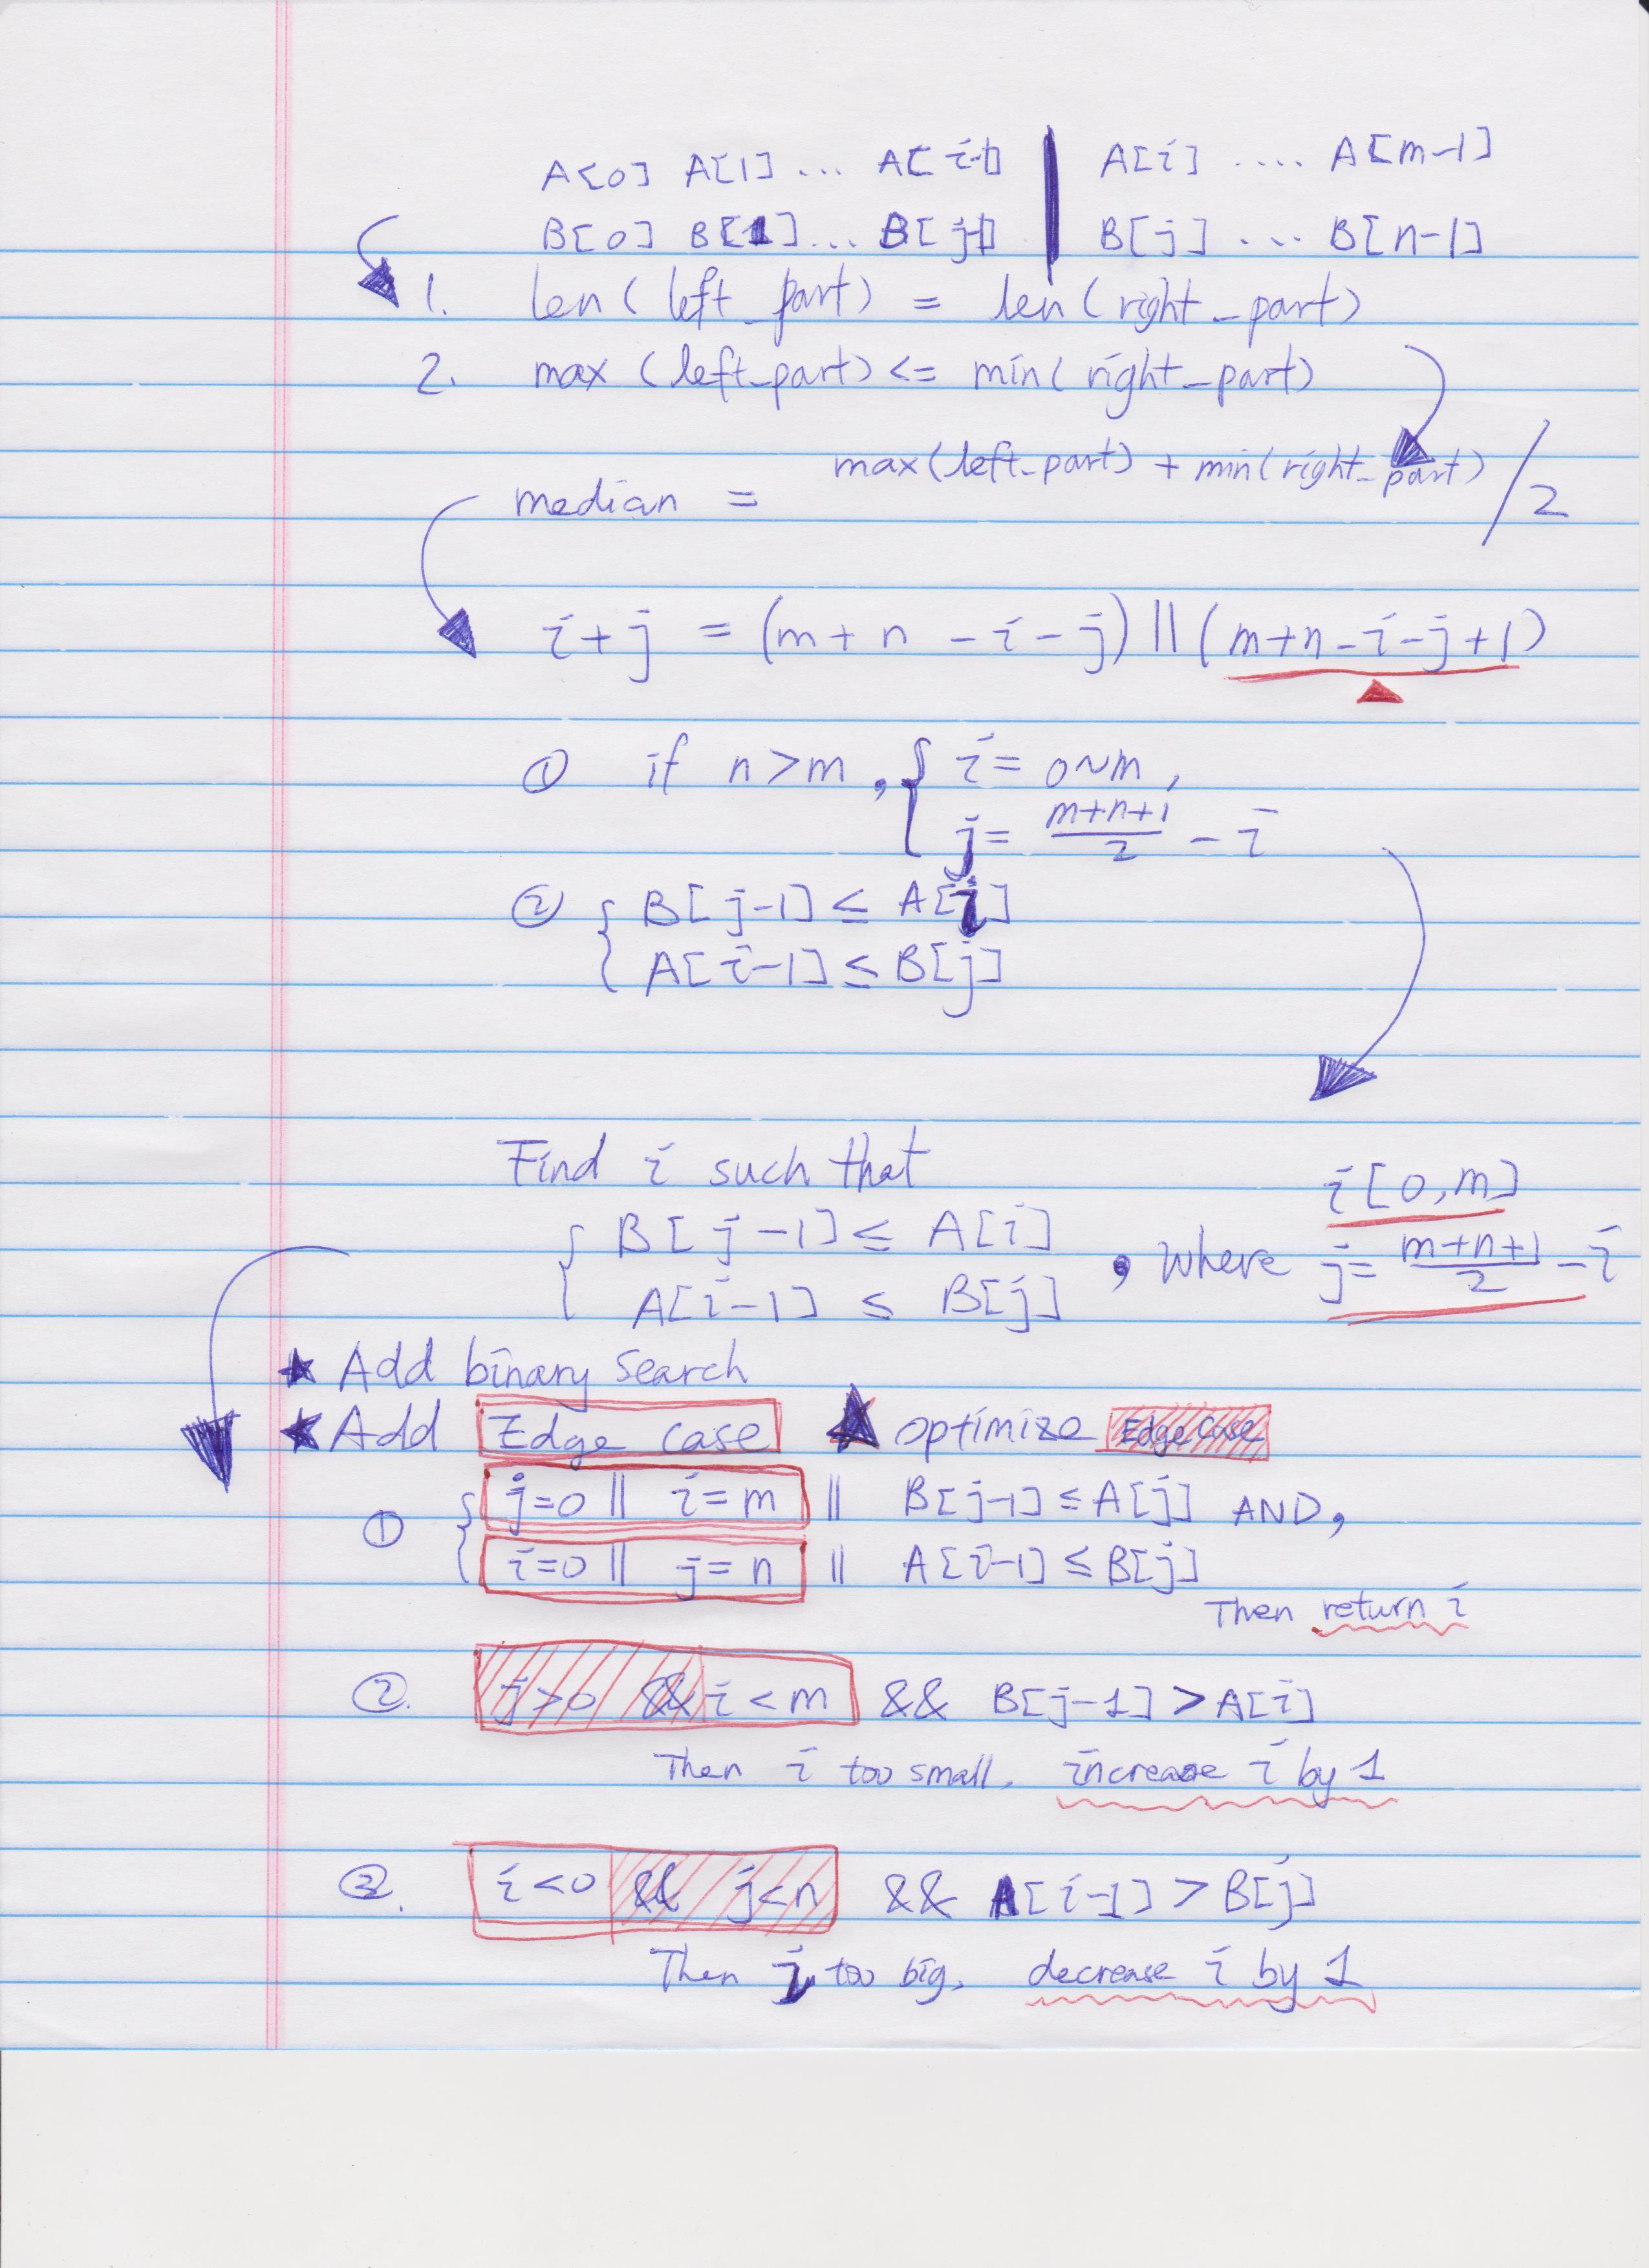 A[0] A[1] ... A[i-1] | A[i] .... A[m-1]
B[0] B[1] ... B[j-1] | B[j] .... B[n-1]
1. len(left_part) = len(right_part)
2. max(left_part) <= min(right_part)
median = max(left_part) + min(right_part) / 2
i+j = (m+n-i-j) || (m+n-i-j+1)
① if n>m, { i = 0~m,
j = (m+n+1)/2 - i
② { B[j-1] ≤ A[i]
A[i-1] ≤ B[j]
Find i such that
{ B[j-1] ≤ A[i]
A[i-1] ≤ B[j]
, where
i[0,m]
j = (m+n+1)/2 - i
★ Add binary search
★ Add Edge case ★ optimize Edge case
① { j=0 || i=m || B[j-1] ≤ A[j] AND,
i=0 || j=n || A[i-1] ≤ B[j]
Then return i
②. j>0 && i<m && B[j-1] > A[i]
Then i too small, increase i by 1
③. i<0 && j<n && A[i-1] > B[j]
Then i too big, decrease i by 1